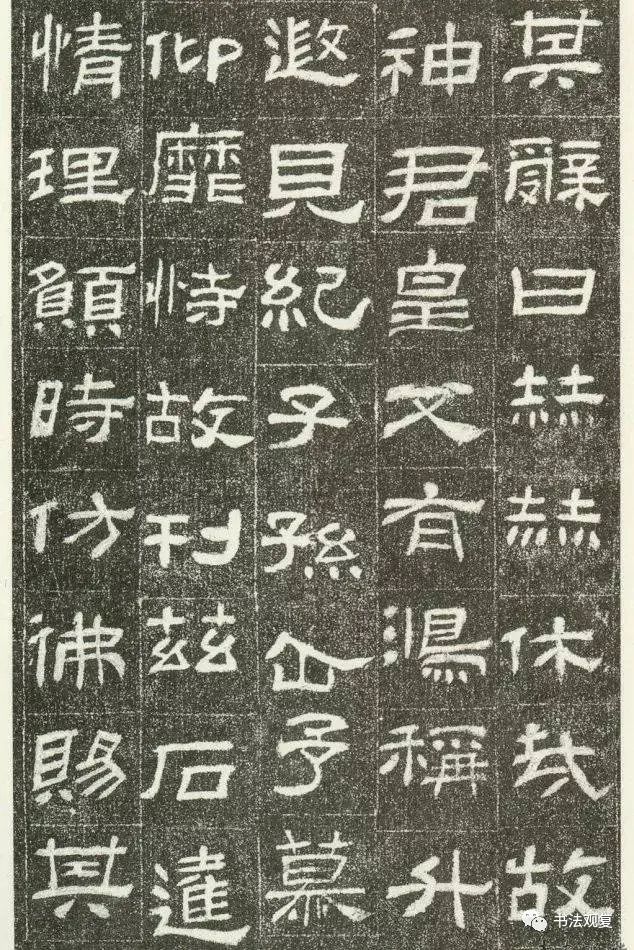 其辭曰赫赫休哉故
神君皇又有鴻稱升
遐見紀子孫企予慕
仰靡恃故刊茲石達
情理願時仿佛賜其
书法观复